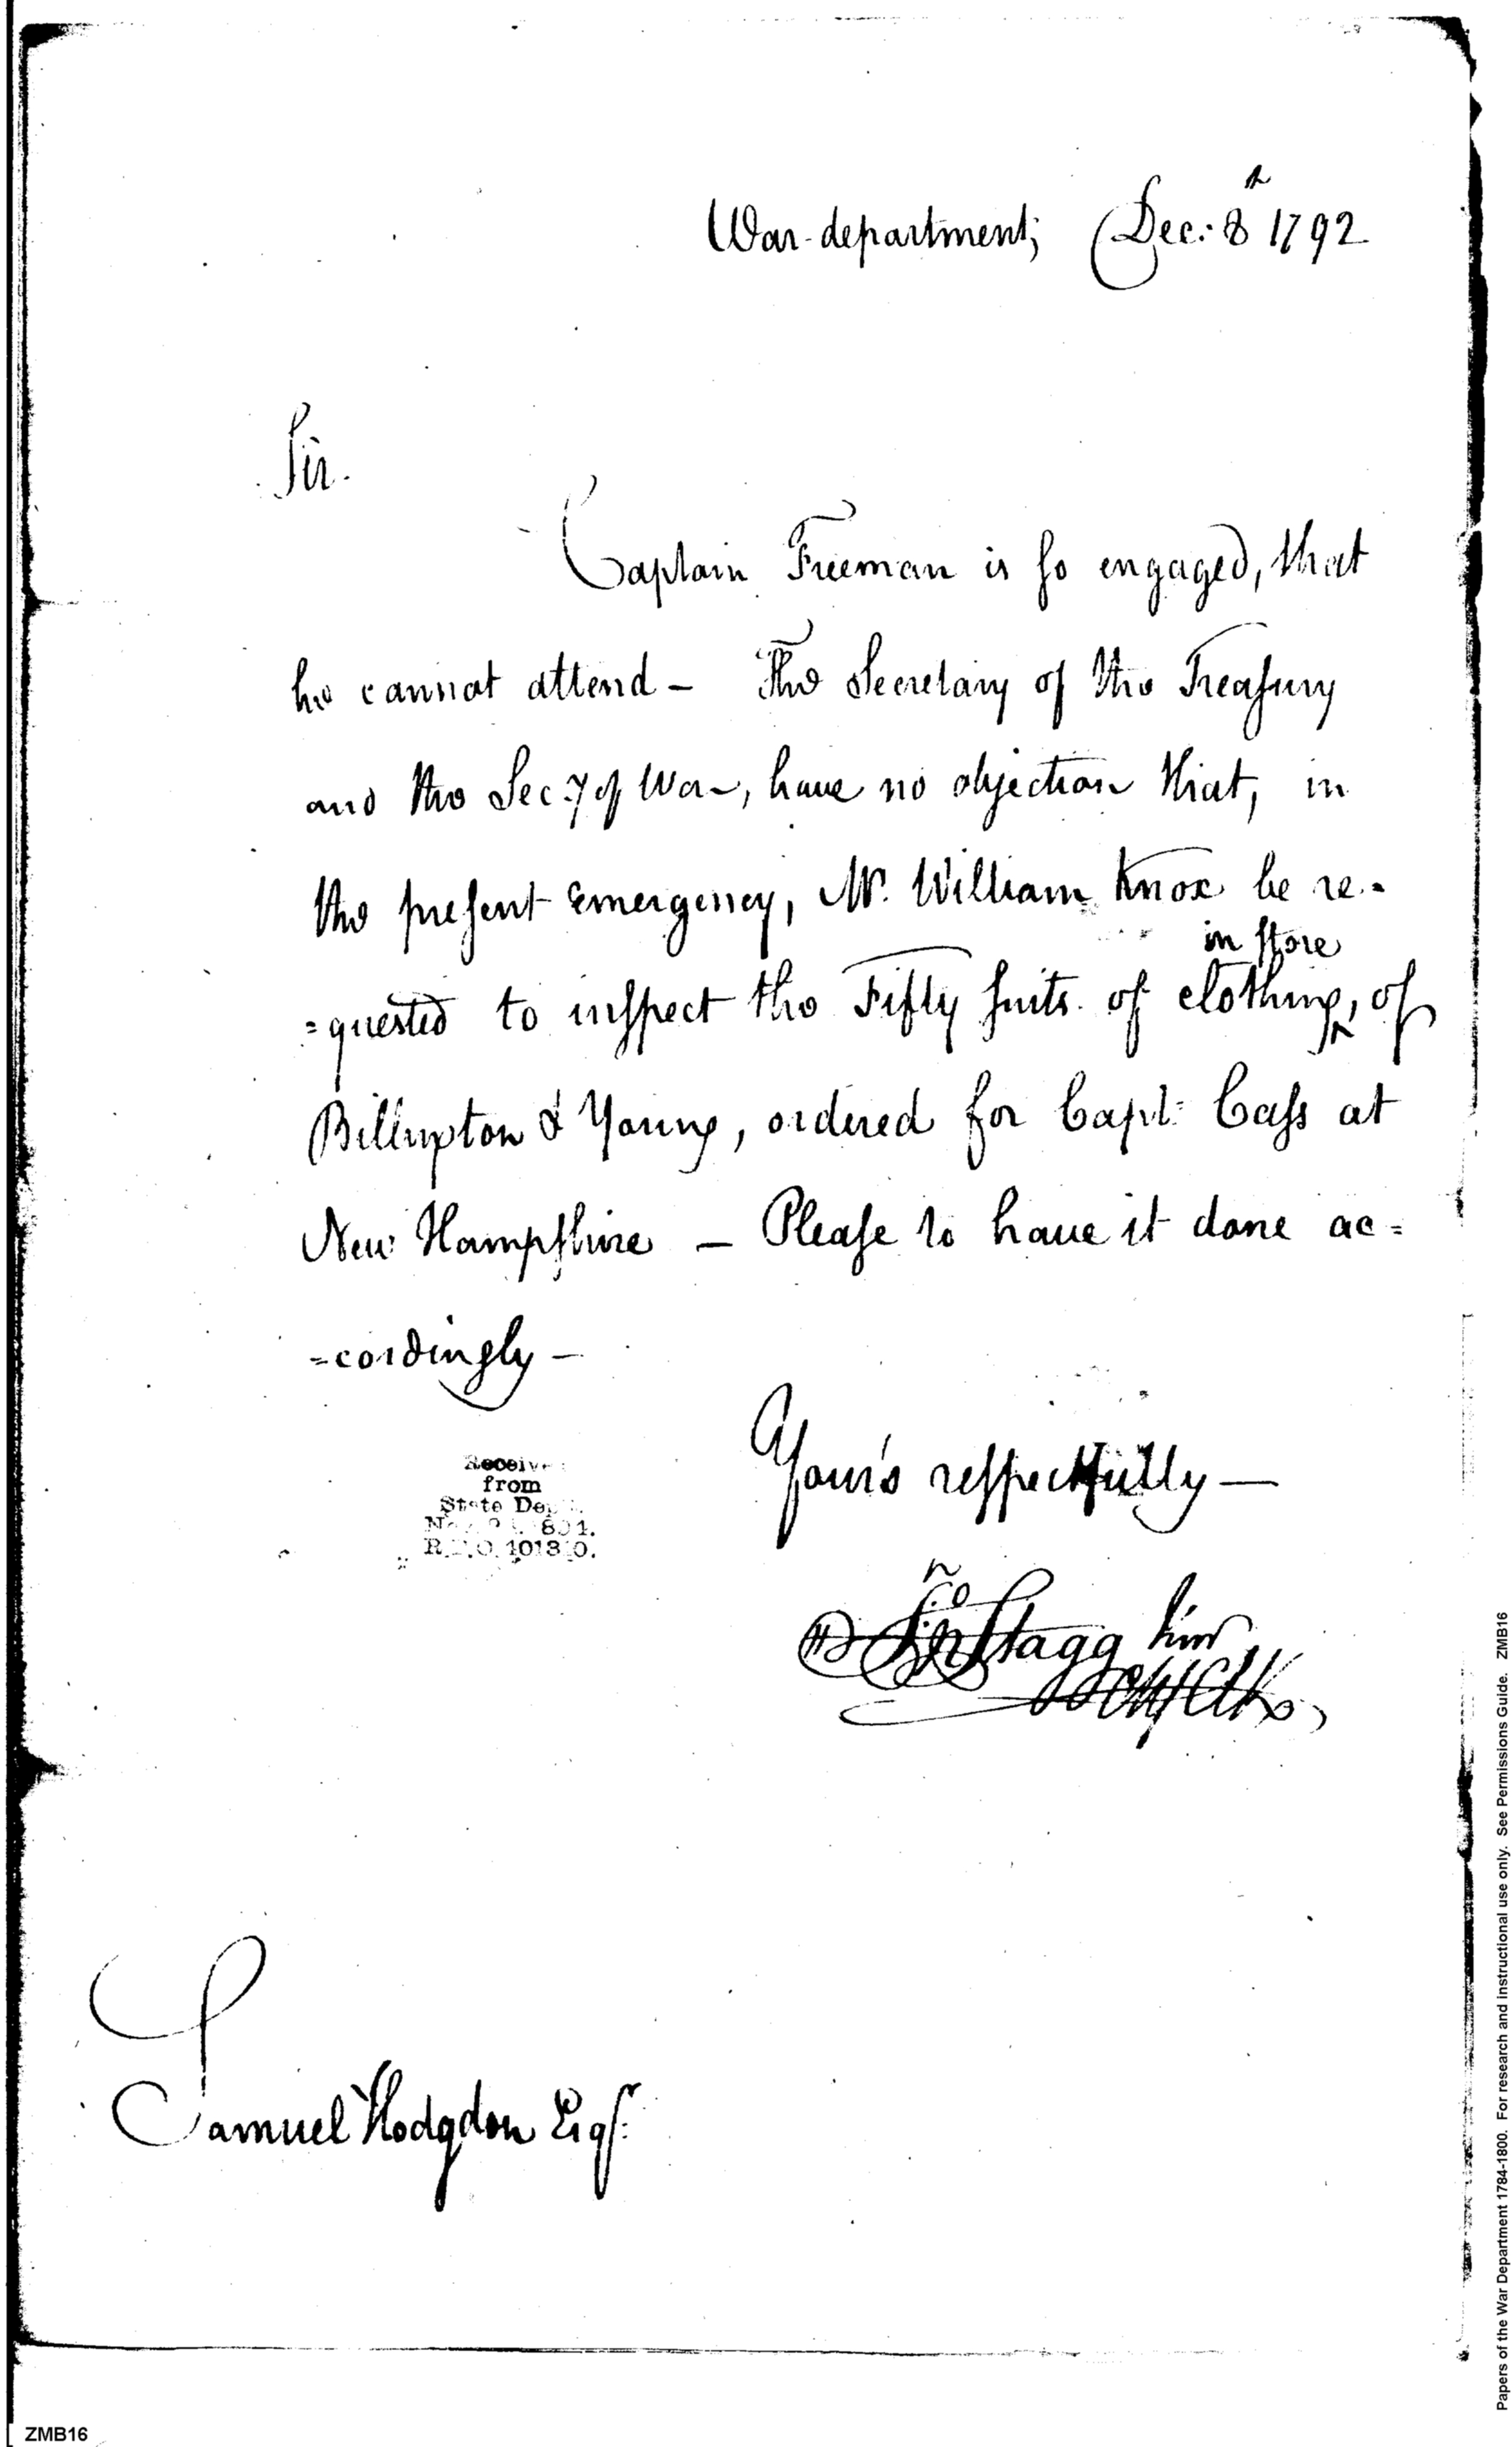 War-department; Dec: 8th 1792
Sir.
Captain Freeman is so engaged, that
he cannot attend - The Secretary of the Treasury
and the Secy of War, have no objection that, in
the present emergency, Mr. William Knox be re-
=quested to inspect the Fifty suits of clothing, in store of
Billington & Young, ordered for Capt: Cass at
New Hampshire - Please to have it done ac=
=cordingly -
Your's respectfully -
Jno Stagg Junr
Chf Clk
Samuel Hodgdon Esqr.
Receive
from
State Dep
R. 
ZMB16
Papers of the War Department 1784-1800. For research and instructional use only. See Permissions Guide. ZMB16